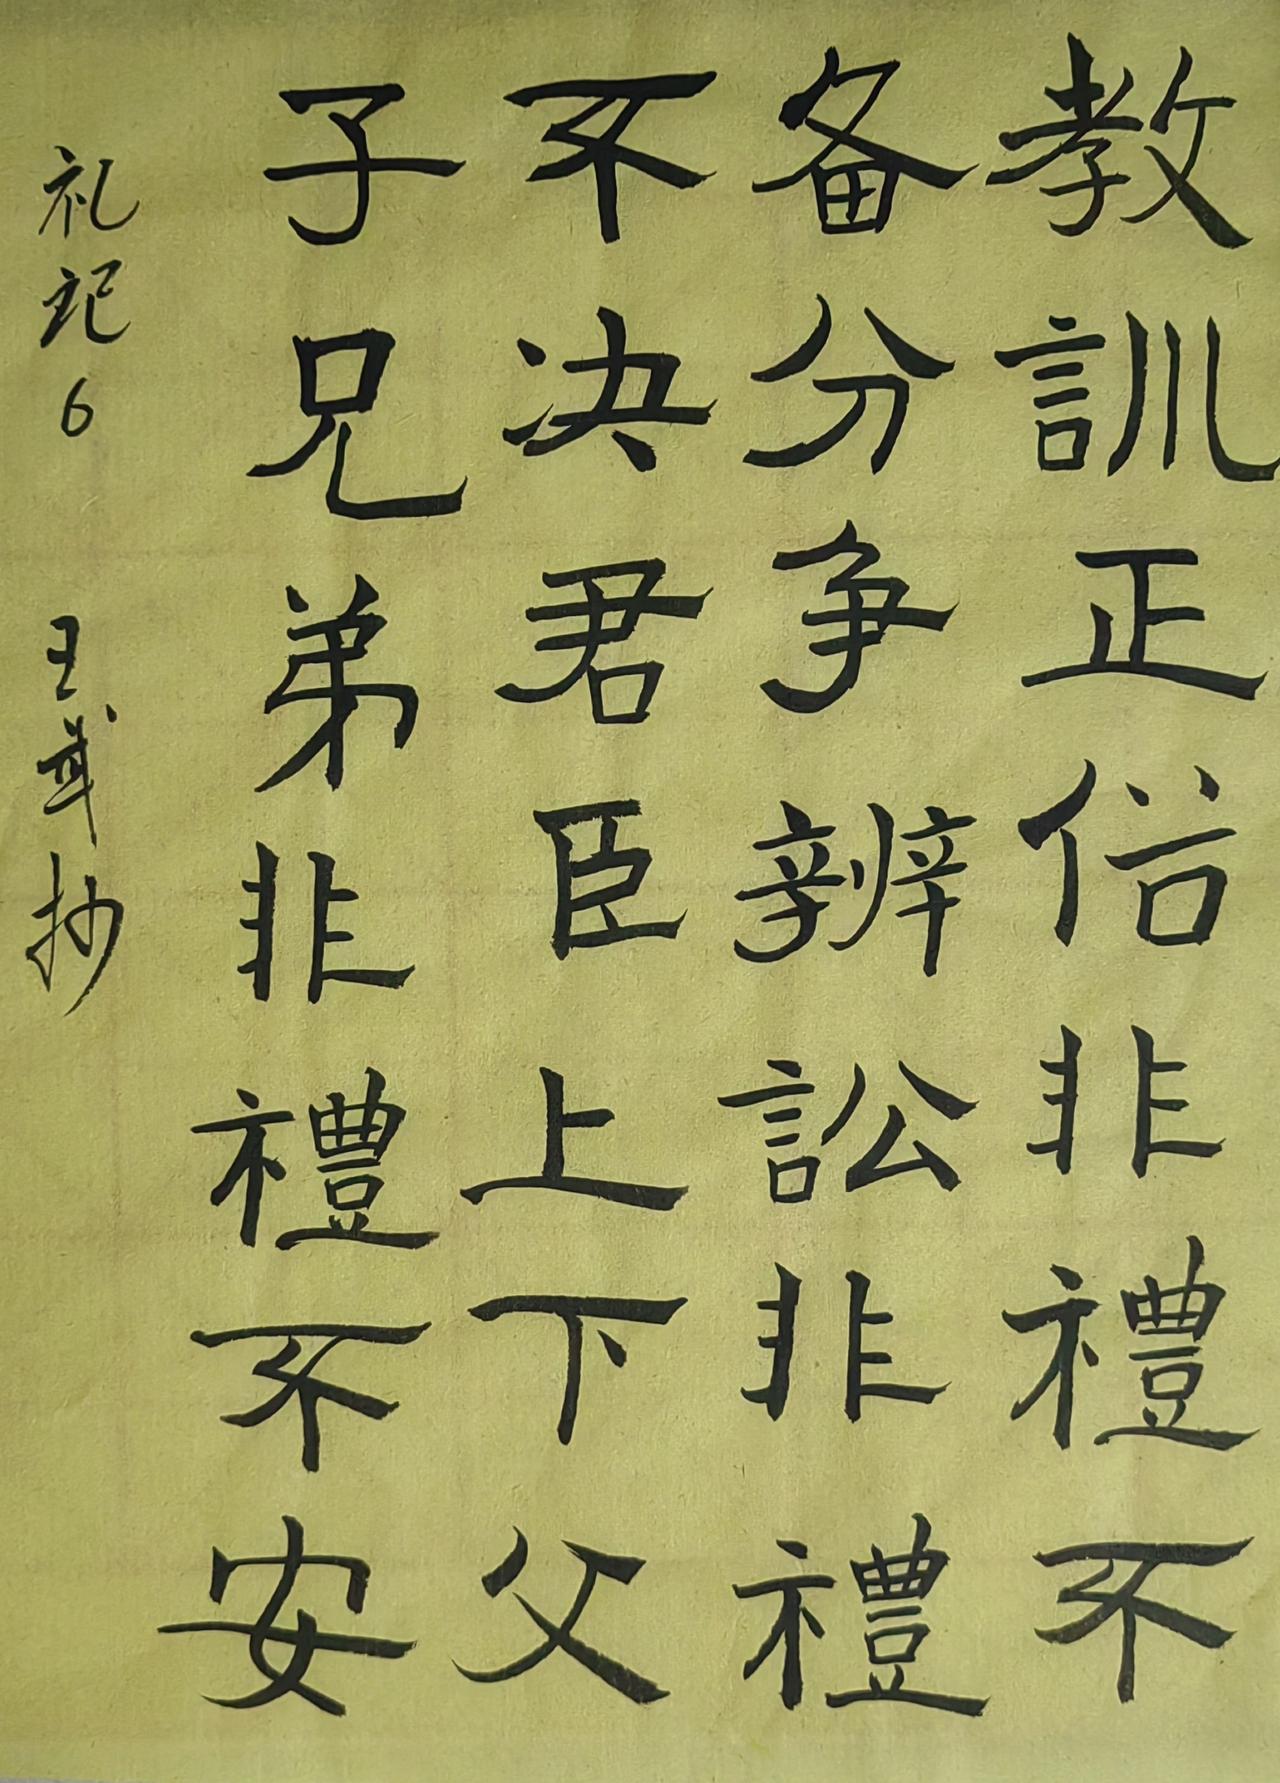 教訓正俗非禮不
备分争辨訟非禮
不决君臣上下父
子兄弟非禮不安
礼记6 王武抄